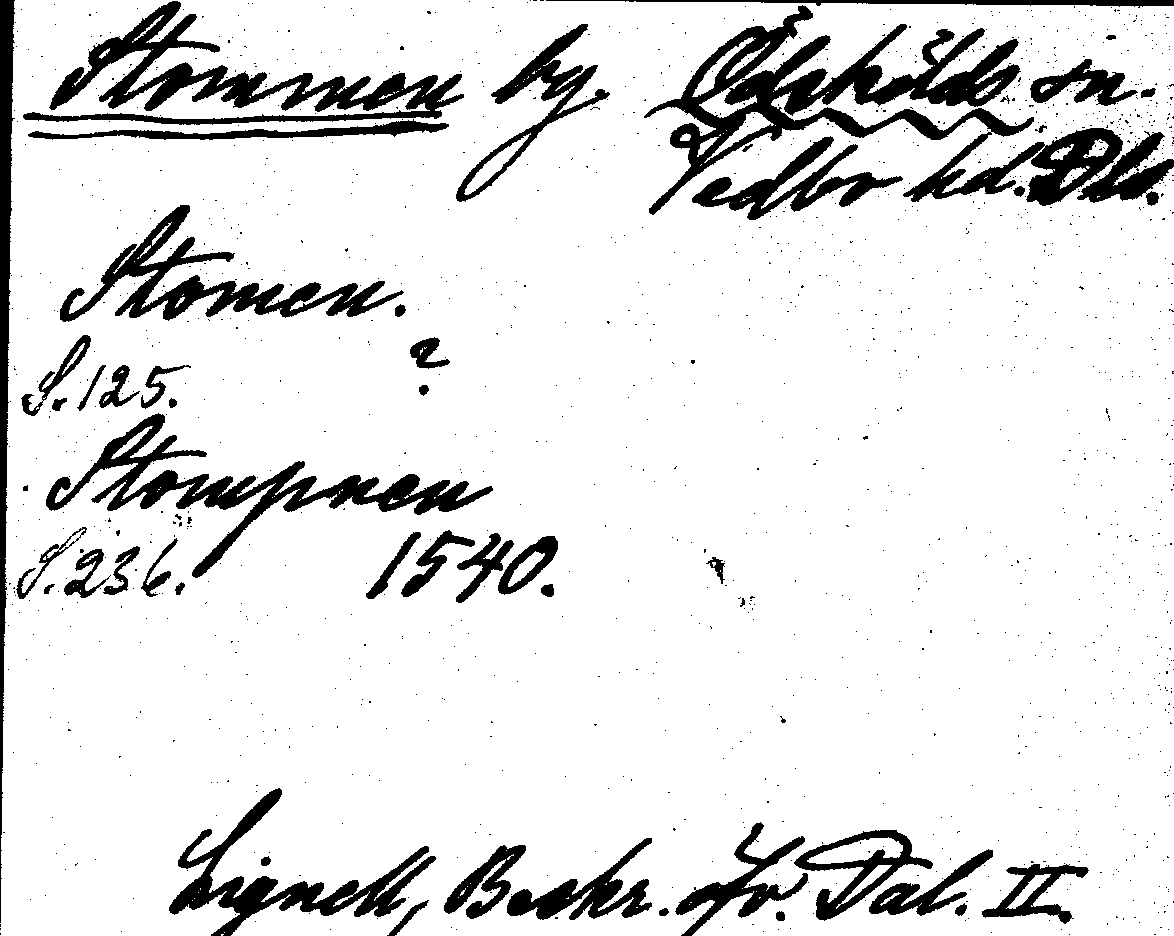 Stommen by. Ödskölds sn.
Vedbo hd. Dls.
Stomen.
S. 125. ?
Stompnen
S. 236. 1540.
Lignell, Beskr. öfv. Dal. II.